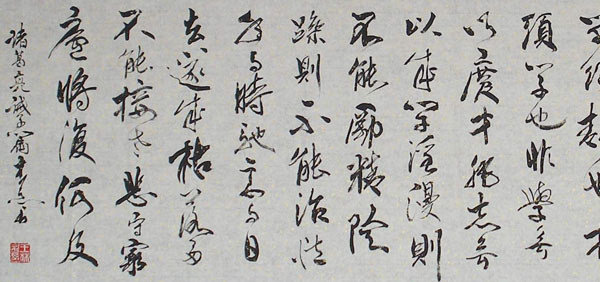 須学也非學無
以廣才非志無
以成学淫漫則
不能勵精險
躁則不能治性
年与時馳意与日
去遂成枯落多
不能接世悲守窮
廬將復何及
諸葛亮誡子篇